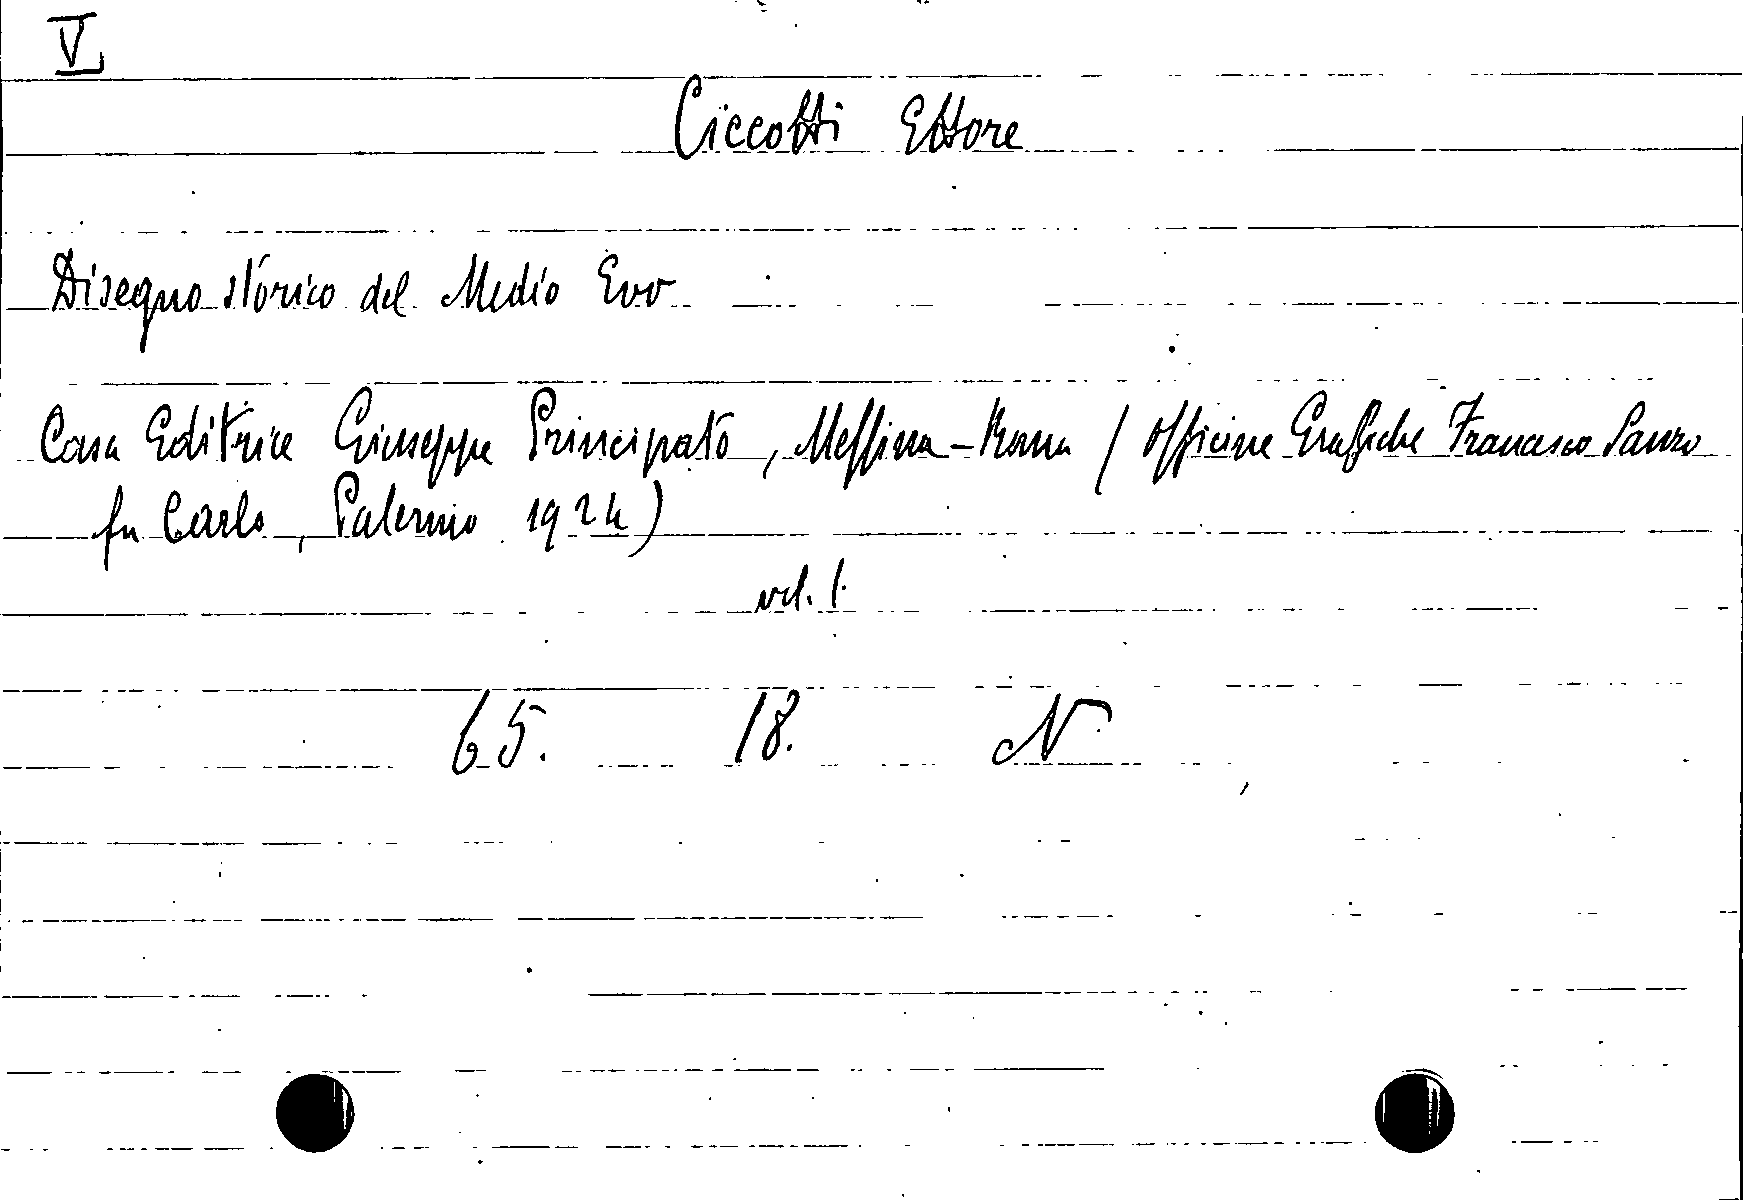 V
Ciccotti Ettore
Disegno storico del Medio Evo
Casa Editrice Giuseppe Principato, Messina-Roma (Officine Grafiche Francesco Sanzo
fu Carlo, Palermo 1924)
vol. 1.
65. 18. N